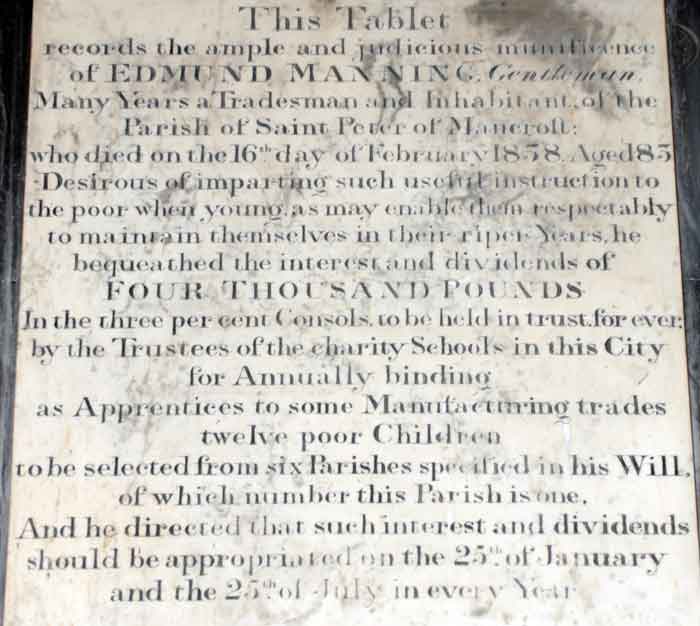 This Tablet
records the ample and judicious munificence
of EDMUND MANNING, Gentleman,
Many Years a Tradesman and Inhabitant, of the
Parish of Saint Peter of Mancroft;
who died on the 16th day of February 1838. Aged 83
Desirous of imparting such useful instruction to
the poor when young, as may enable them respectably
to maintain themselves in their riper Years, he
bequeathed the interest and dividends of
FOUR THOUSAND POUNDS
In the three per cent Consols, to be held in trust, for ever;
by the Trustees of the charity Schools in this City
for Annually binding
as Apprentices to some Manufacturing trades
twelve poor Children
to be selected from six Parishes specified in his Will,
of which number this Parish is one,
And he directed that such interest and dividends
should be appropriated on the 25th of January
and the 25th of July in every Year